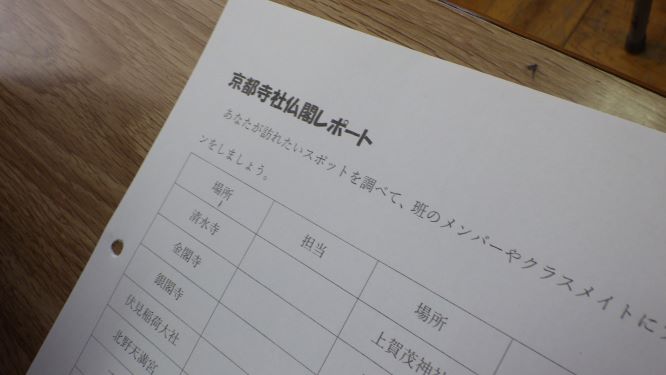 京都寺社仏閣レポート
あなたが訪れたいスポットを調べて、班のメンバーやクラスメイトに
ンをしましょう。
場所 担当 場所
清水寺 上賀茂神社
金閣寺
銀閣寺
伏見稲荷大社
北野天満宮